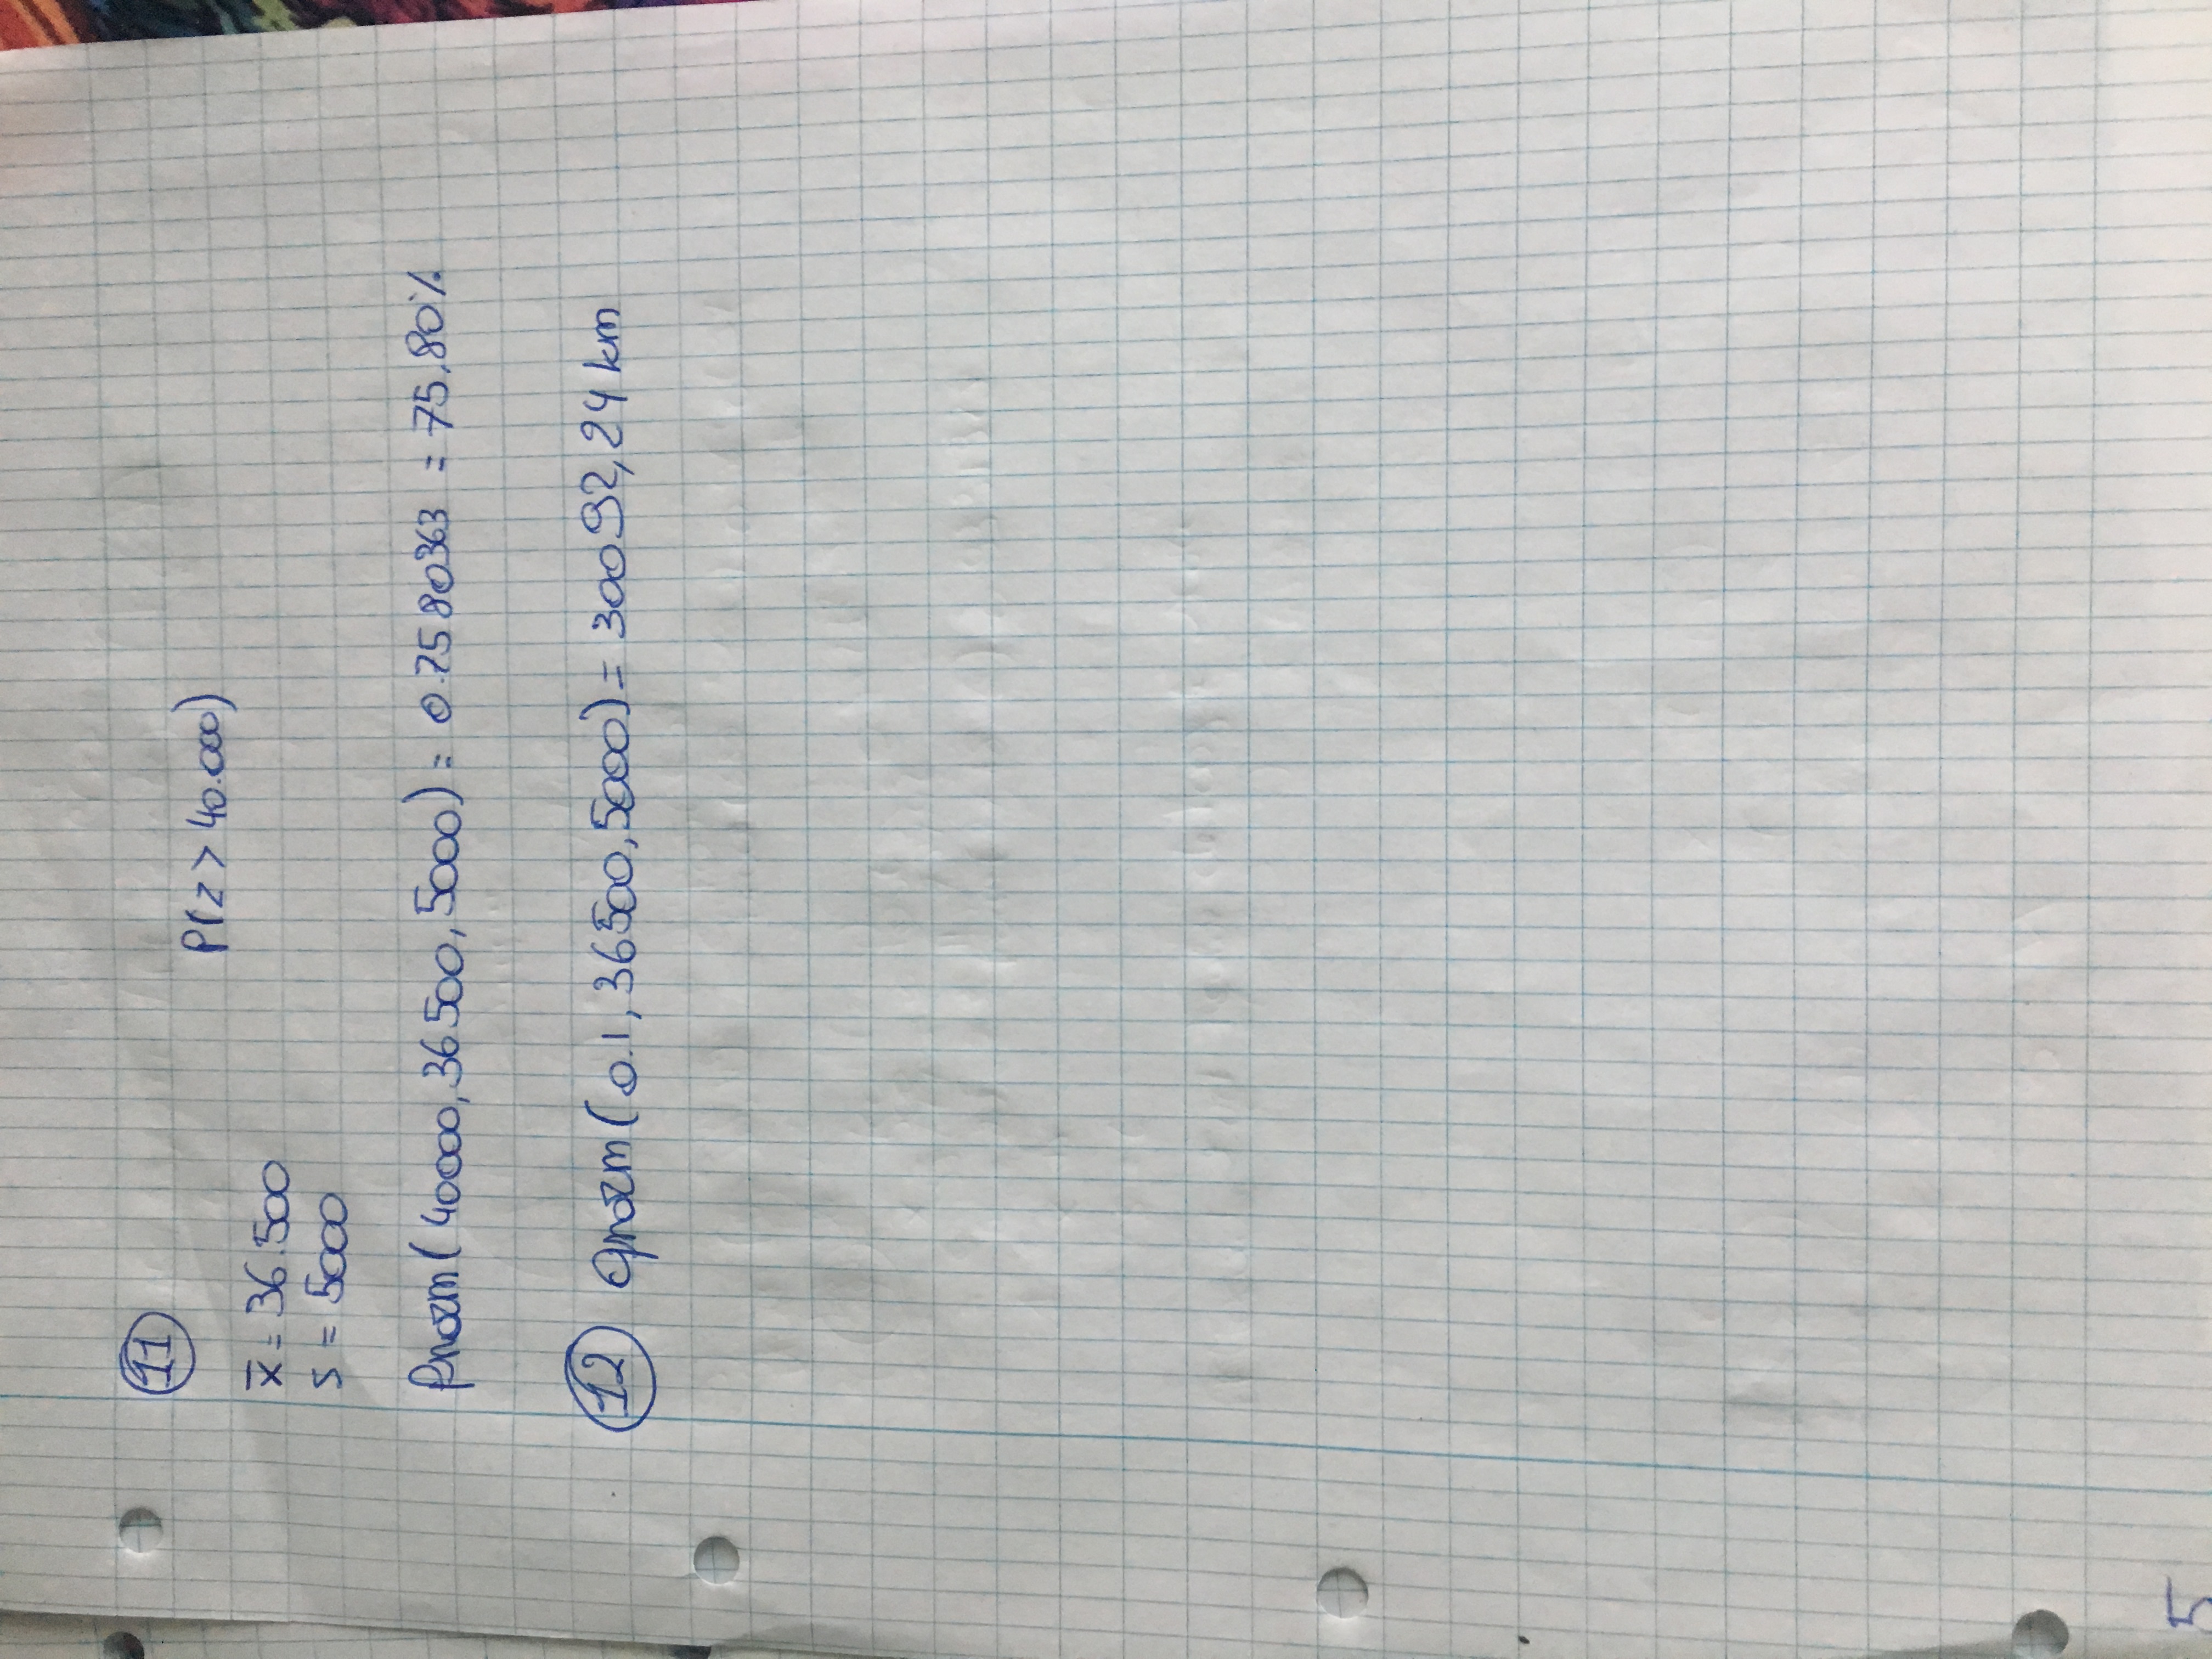 11
P(z > 40.000)
x̄ = 36.500
s = 5000
Pnorm(40000, 36500, 5000) = 0.7580363 = 75,80%
12 qnorm(0.1, 36500, 5000) = 30092,24 km
5